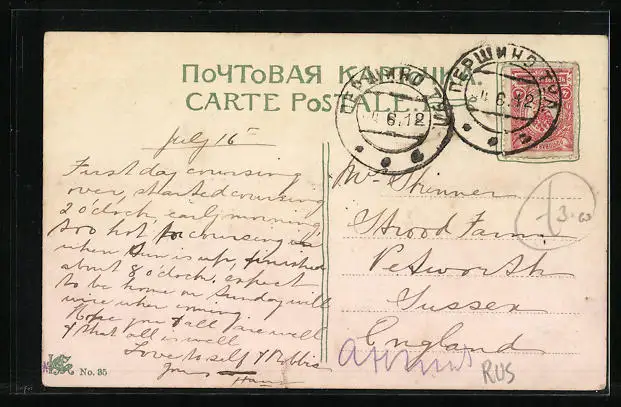 ПОЧТОВАЯ КАРТОЧКА
CARTE POSTALE
ПЕРШИНО ТУЛ
4.6.12
ПЕРШИНО ТУЛ
4.6.12
July 16th
First day coursing
over, started coursing
2 o'clock, early morning,
too hot for coursing
when sun is up, finished
about 8 o'clock, expect
to be home on Sunday will
wire when coming.
Hope you & all are well
& that all is well
Love to self & Bobbie
Mr Skinner
Strood Farm
Petworth
Sussex
England
£3.00
RUS
No. 35